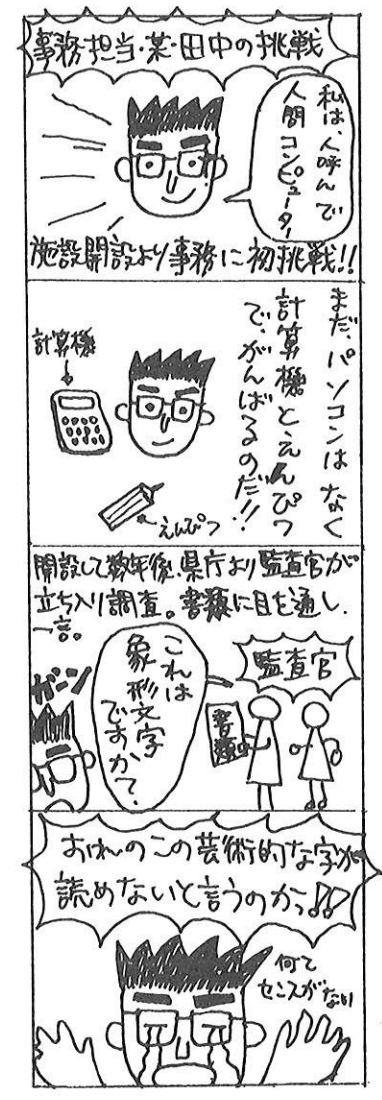 事務担当・某・田中の挑戦
私は、人呼んで
人間コンピューター
施設開設より事務に初挑戦!!
まだ、パソコンはなく
計算機とえんぴつ
で、がんばるのだ!!
計算機
えんぴつ
開設して数年後、県庁より監査官が
立ち入り調査。書類に目を通し、
一言。
監査官
これは
象形文字
ですか?
書類
ガーン
おれのこの芸術的な字が
読めないと言うのかっ!!
何て
センスがない